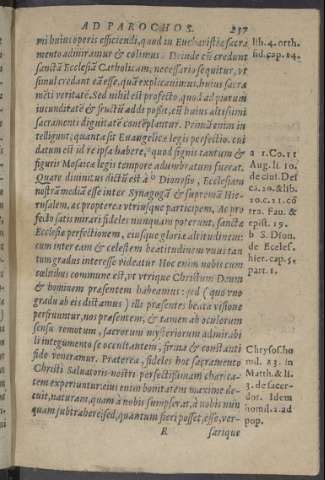 AD PAROCHOS. 237
mi huius operis efficiendi, quod in Eucharistiæ sacra
mento admiramur & colimus. Deinde cùm credunt
sanctā Ecclesiā Catholicam, necessariò sequitur, vt
simul credant eā esse, quā explicauimus, huius sacra
mēti veritatē. Sed nihil est profecto, quod ad piorum
iucunditatē & fructū addi possit, cū huius altissimi
sacramenti dignitatē contēplantur. Primùm enim in
telligunt, quanta sit Euangelicæ legis perfectio, cui
datum est id re ipsa habere, quod signis tantùm &
figuris Mosaicæ legis tempore adumbratum fuerat.
Quare diuinitus dictū est à b Dionysio, Ecclesiam
nostrā mediā esse inter Synagogā & supremā Hie-
rusalem, ac propterea vtriusque participem. Ac pro
fectò satis mirari fideles nunquam poterunt, sanctæ
Ecclesiæ perfectionem, eiusque gloriæ altitudinem:
cum inter eam & cælestem beatitudinem vnus tan
tum gradus interesse videatur. Hoc enim nobis cum
cælitibus commune est, vt vtrique Christum Deum
& hominem præsentem habeamus: sed (quo vno
gradu ab eis distamus) illi præsentes beata visione
perfruuntur, nos præsentem, & tamen ab oculorum
sensu remotum, sacrorum mysteriorum admirabi
li integumento se occultantem, firma & constanti
fide veneramur. Præterea, fideles hoc sacramento
Christi Saluatoris nostri perfectissimam charita-
tem experiuntur: eius enim bonitatem maximè de-
cuit, naturam, quam à nobis sumpserat, à nobis nun
quam subtrahere: sed, quantum fieri posset, esse, ver-
R sarique
lib. 4. orth.
fid. cap. 14.
a 1. Co. 11
Aug. li. 10.
de ciuit. Dei
ca. 20. & lib.
20. c. 21. cō
tra. Fau. &
epist. 19.
b S. Dion.
de Ecclef.
hier. cap. 5.
part. 1.
Chrysos. ho
mil. 83. in
Matth. & li.
3. de sacer-
dot. Idem
homil. 2. ad
pop.